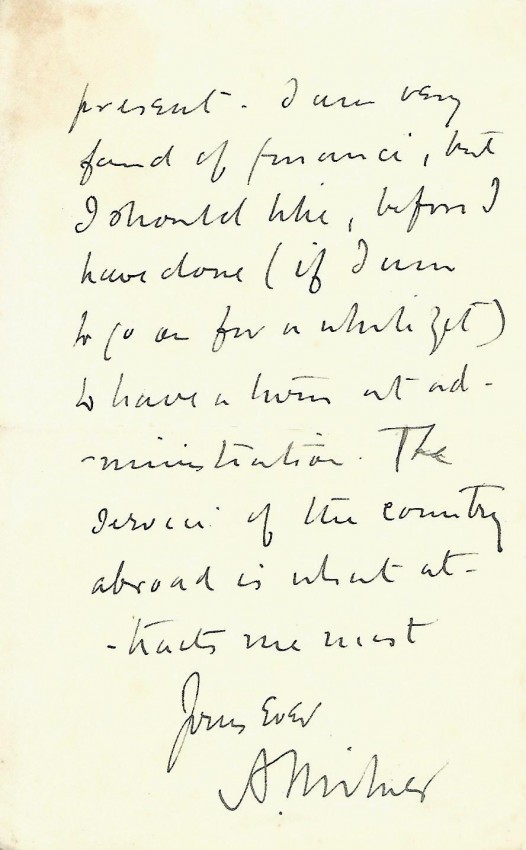 present. I am very
fond of finance, but
I should like, before I
have done (if I am
to go on for a while yet)
to have a turn at ad-
-ministration. The
service of the country
abroad is what at-
-tracts me most
Yours Ever
A. Milner